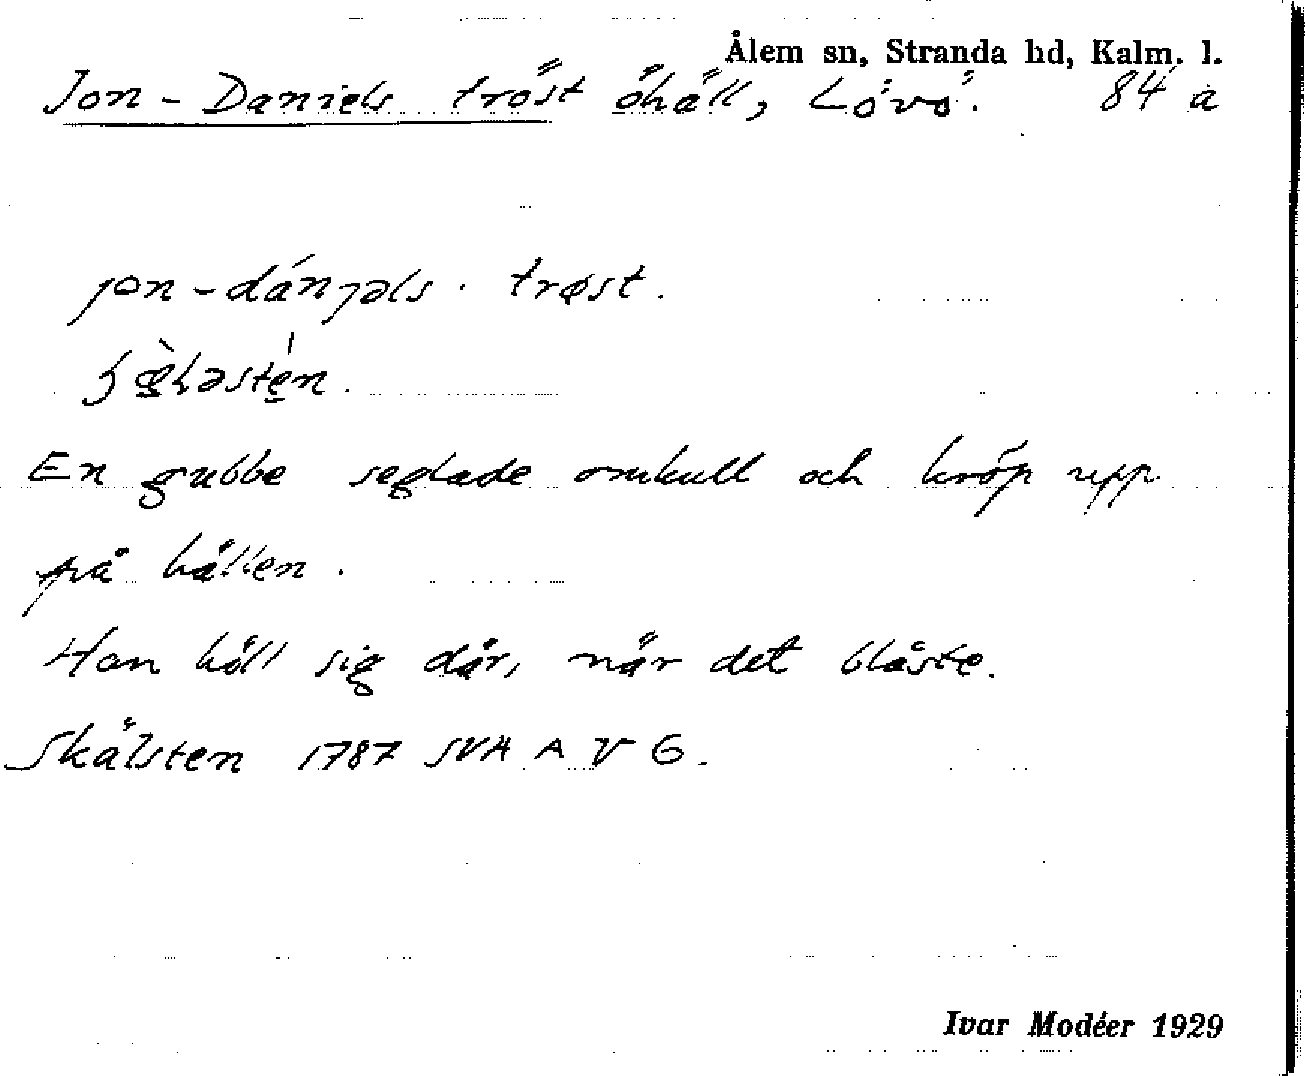 Ålem sn, Stranda hd, Kalm. l.
Jon-Daniels tröst öhäll, Lövö. 84 a
jon-dánjəls. trøst.
En grubbe seglade omkull och kröp upp
på hällen.
Han höll sig där, när det blåste.
Skälsten 1787 SVA A V 6.
Ivar Modéer 1929